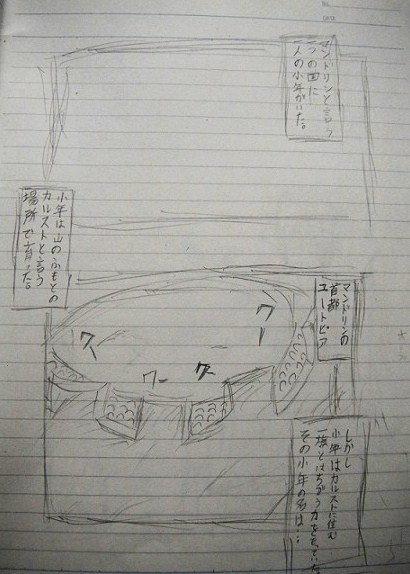 マンドリンと言う
一つの国に
一人の小年がいた。
小年は山のふもとの
カルストと言う
場所で育った。
マンドリンの
首都
ユートピア
ワー
ワー
ワー
ワー
しかし
小年はカルストに住む
一族とはちがう力をもっていた
その小年の名は…